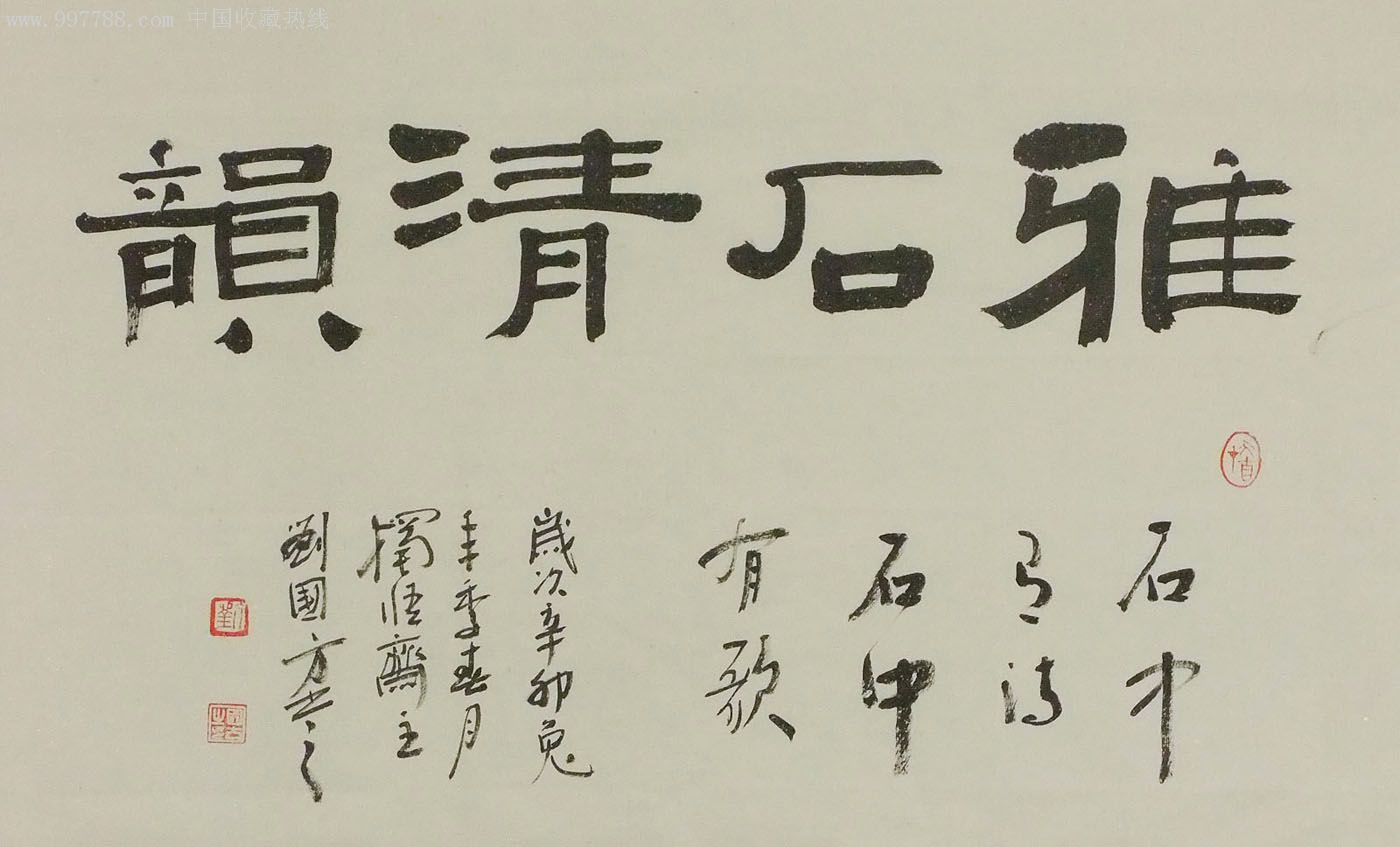 www.997788.com 中国收藏热线
雅石清韻
石中
有詩
石中
有歌
歲次辛卯兔
年季春月
獨悟齋主
劉國方書之
劉